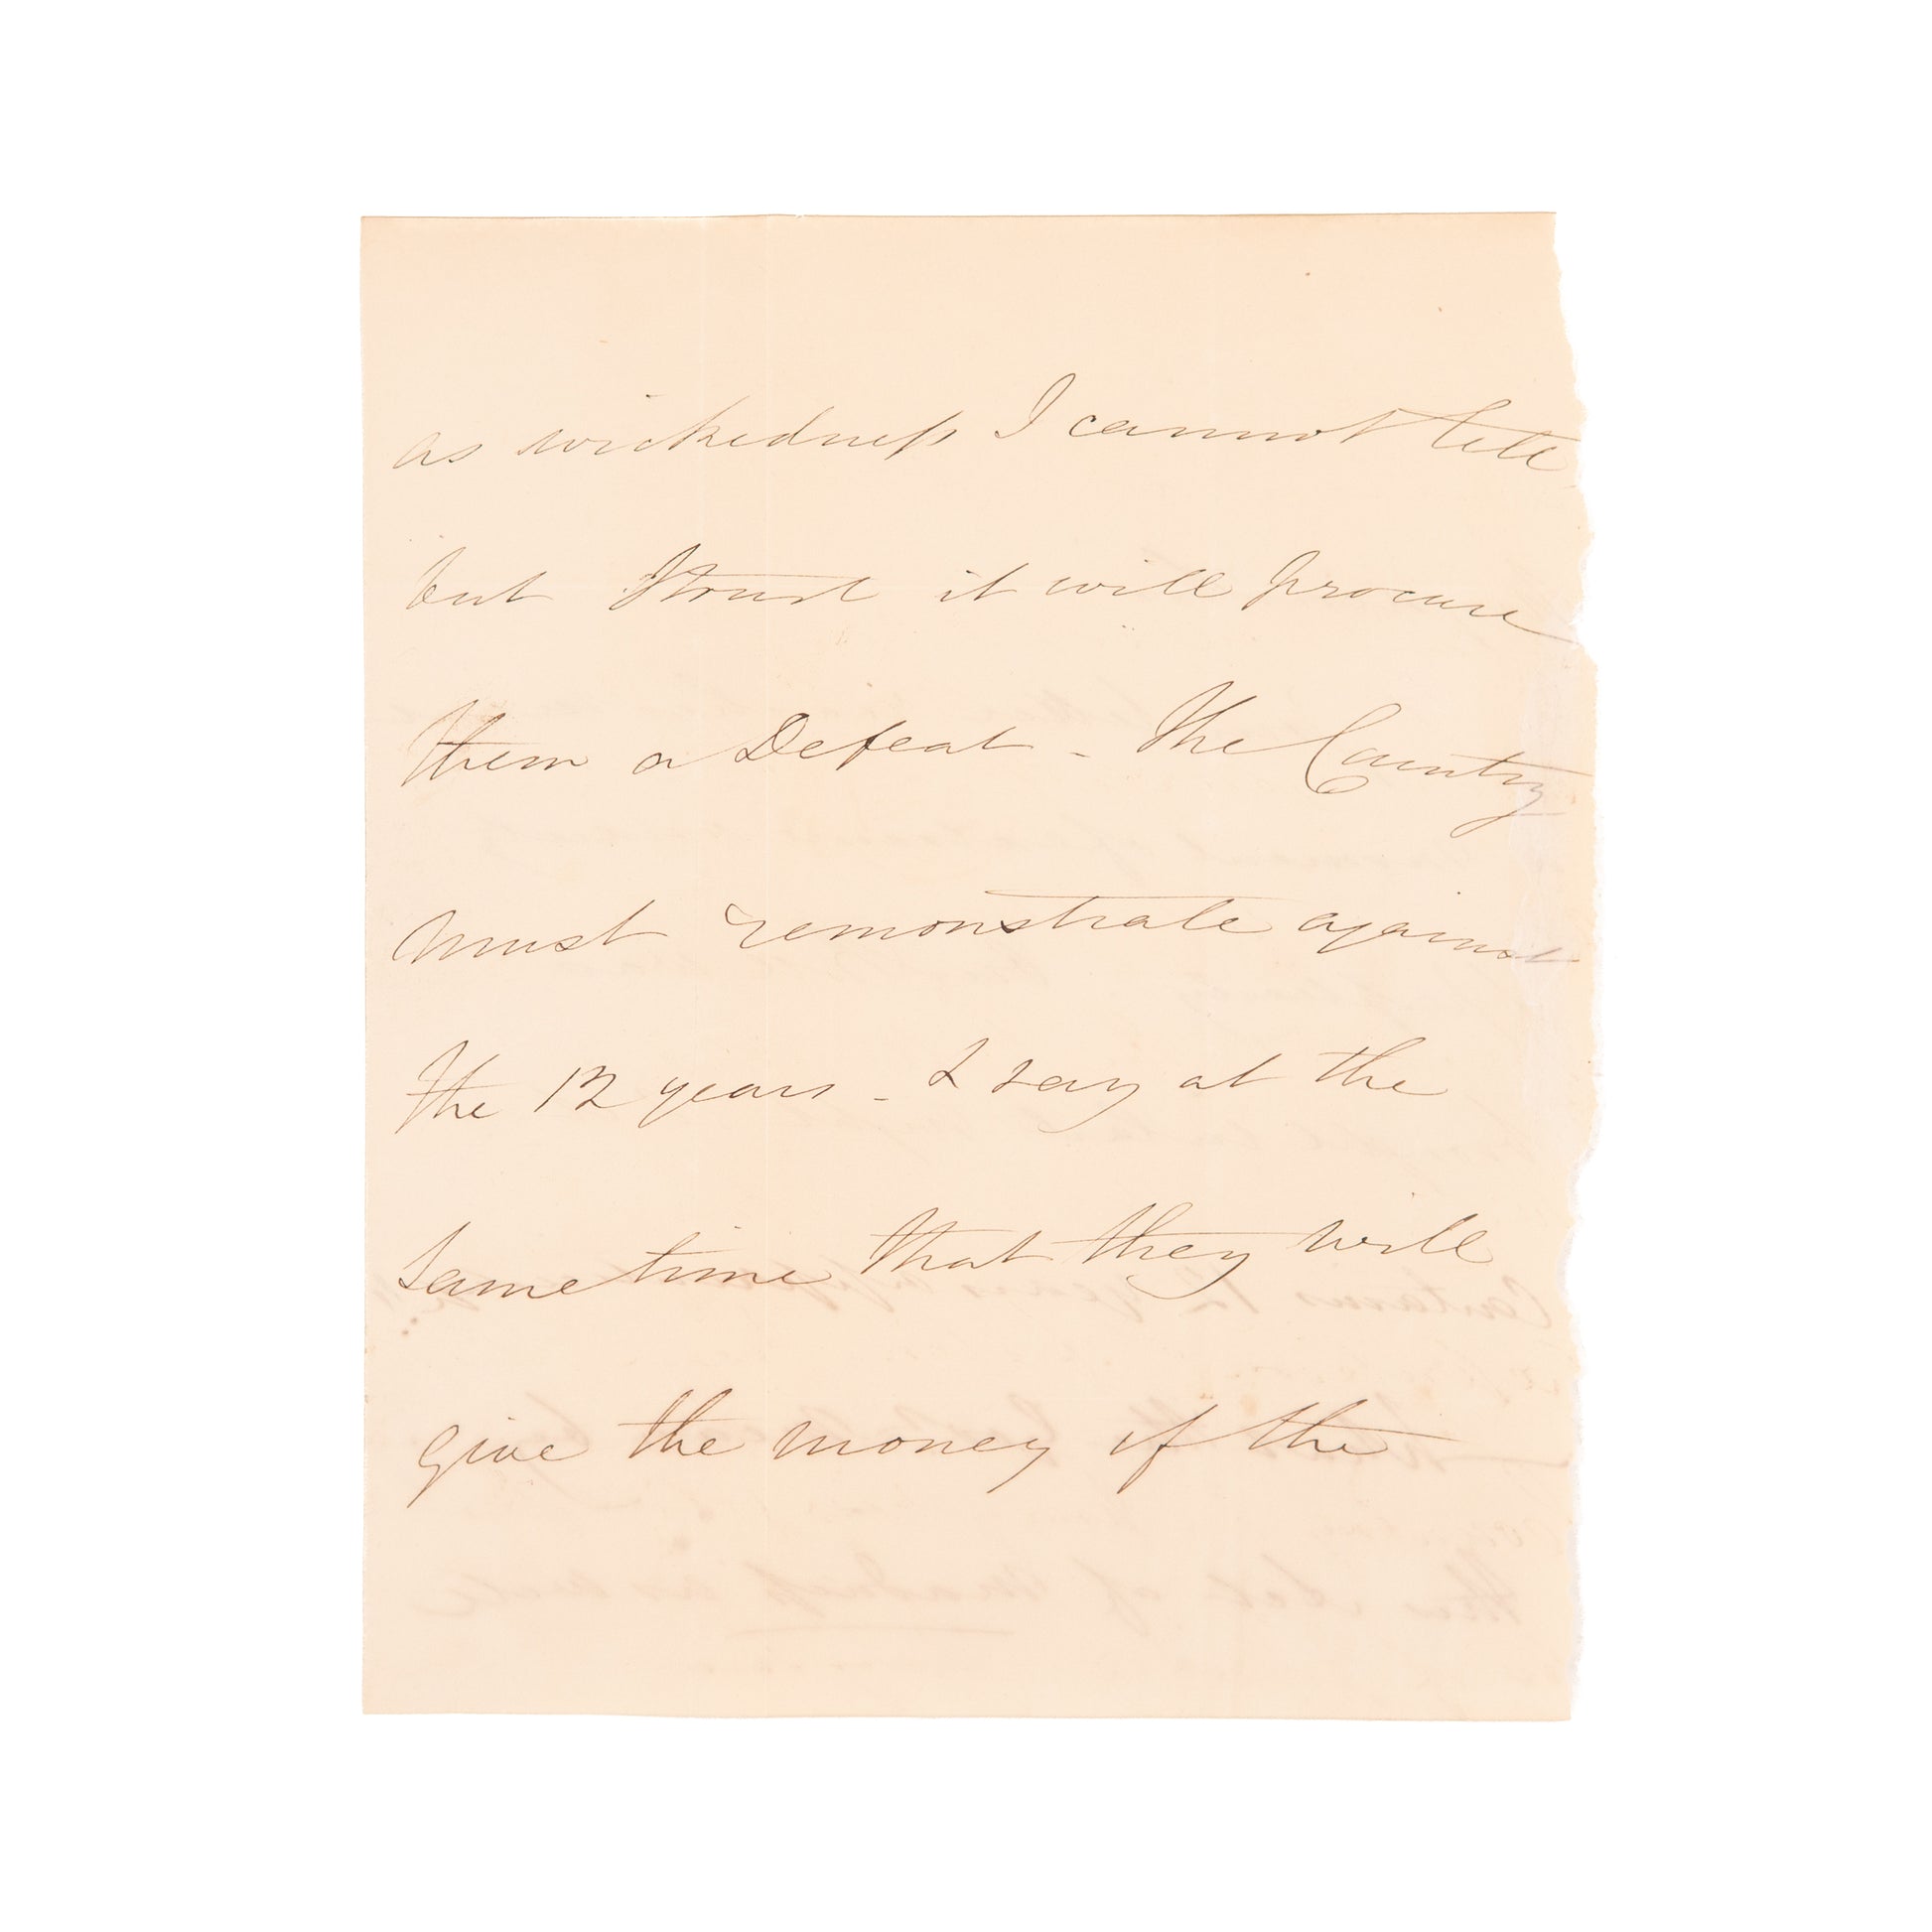 as wickedness I cannot tell
but I trust it will procure
them a Defeat - The Country
must remonstrate against
the 12 years - & say at the
same time that they will
give the money if the